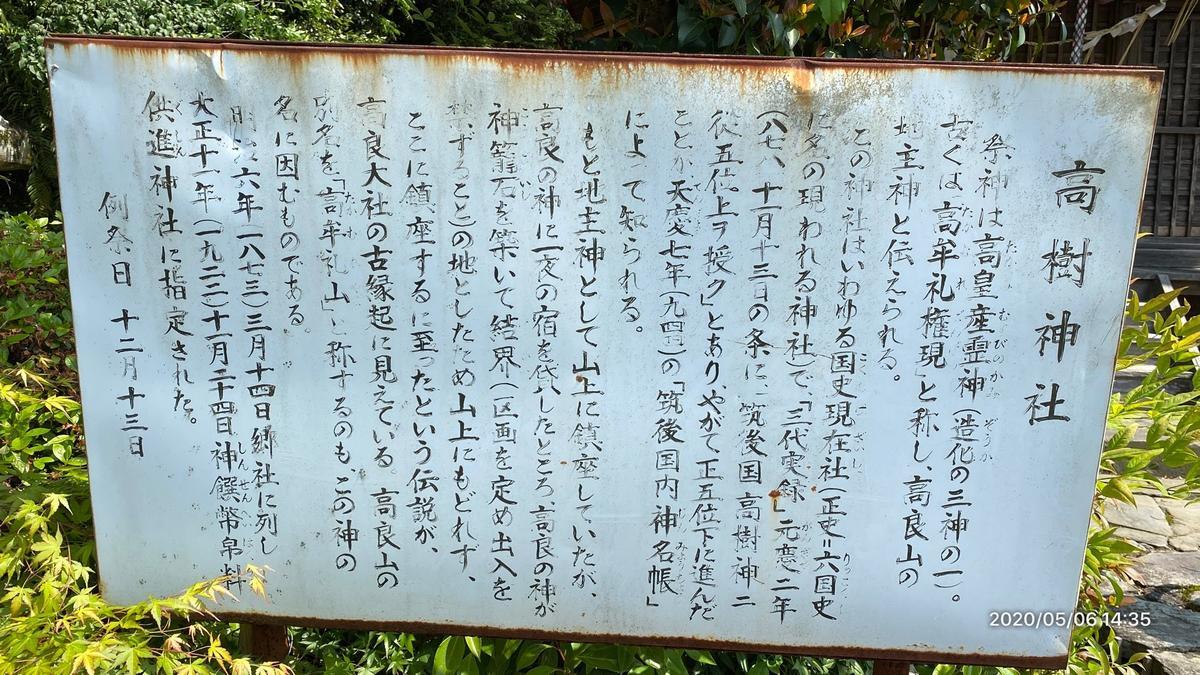 高樹神社
祭神は高皇産霊神(造化の三神の一)。
古くは「高牟礼権現」と称し、高良山の
地主神と伝えられる。
この神社はいわゆる国史現在社(正史=六国史
に名の現われる神社)で、「三代実録」元慶二年
(八七八、十一月十三日の条に「筑後国高樹神ニ
従五位上ヲ授ク」とあり、やがて正五位下に進んだ
ことが天慶七年(九四四)の「筑後国内神名帳」
によって知られる。
もと地主神として山上に鎮座していたが、
高良の神に一夜の宿を貸したところ高良の神が
神籠石を築いて結界(区画を定め出入を
禁ずること)の地としたため山上にもどれず、
ここに鎮座するに至ったという伝説が、
高良大社の古縁起に見えている。高良山の
別名を「高牟礼山」と称するのも、この神の
名に因むものである。
明治六年(一八七三)三月十四日郷社に列し
大正十一年(一九二二)十一月二十四日神饌幣帛料
供進神社に指定された。
例祭日 十二月十三日
2020/05/06 14:35